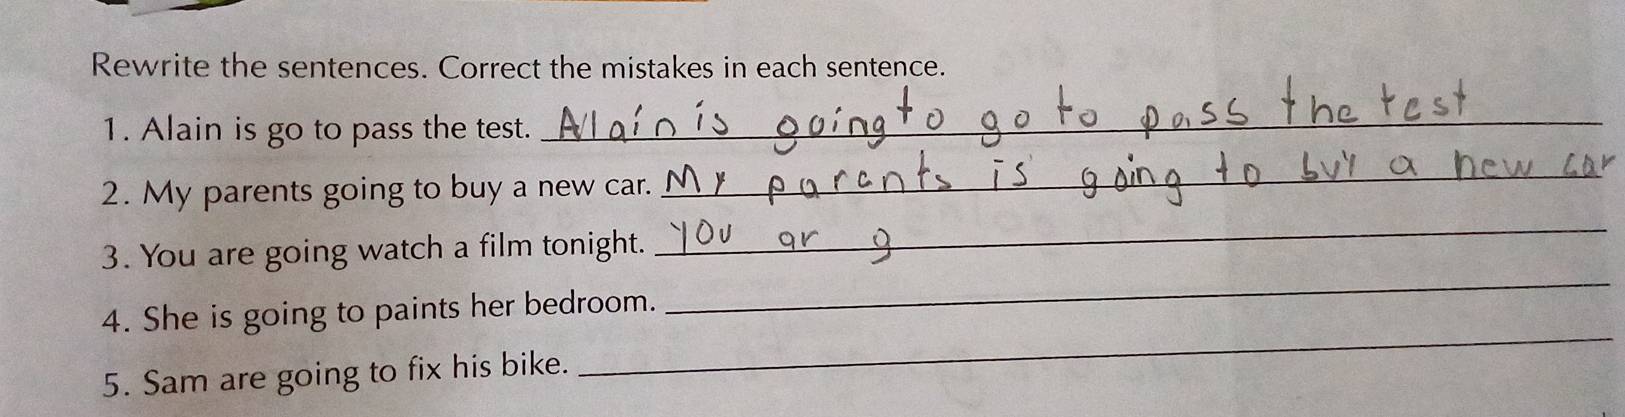 Rewrite the sentences. Correct the mistakes in each sentence.
1. Alain is go to pass the test. Alain is going to go to pass the test
2. My parents going to buy a new car. My parents is going to buy a new car
3. You are going watch a film tonight. you ar g
4. She is going to paints her bedroom.
5. Sam are going to fix his bike.